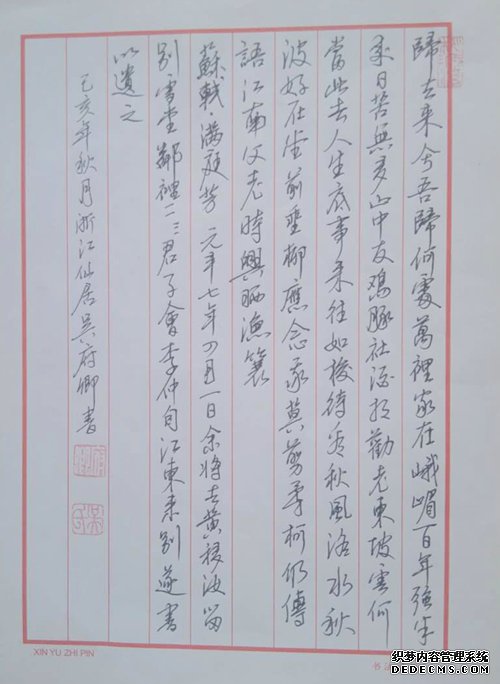 歸去来兮吾歸何處萬裡家在峨嵋百年強半
来日苦無多山中友鸡豚社酒相勸老東坡雲何
當此去人生底事来往如梭待看秋風洛水秋
波好在堂前垂柳應念我莫剪柔柯仍傳
語江南父老時興晒漁蓑
蘇軾·满庭芳 元年七年四月一日余将去黄移汝留
别雪堂鄰裡二三君子會李仲自江東来别遂書
以遗之
己亥年秋月浙江仙居吴府卿書
XIN YU ZHI PIN
书法
织梦内容管理系统
DEDECMS.COM